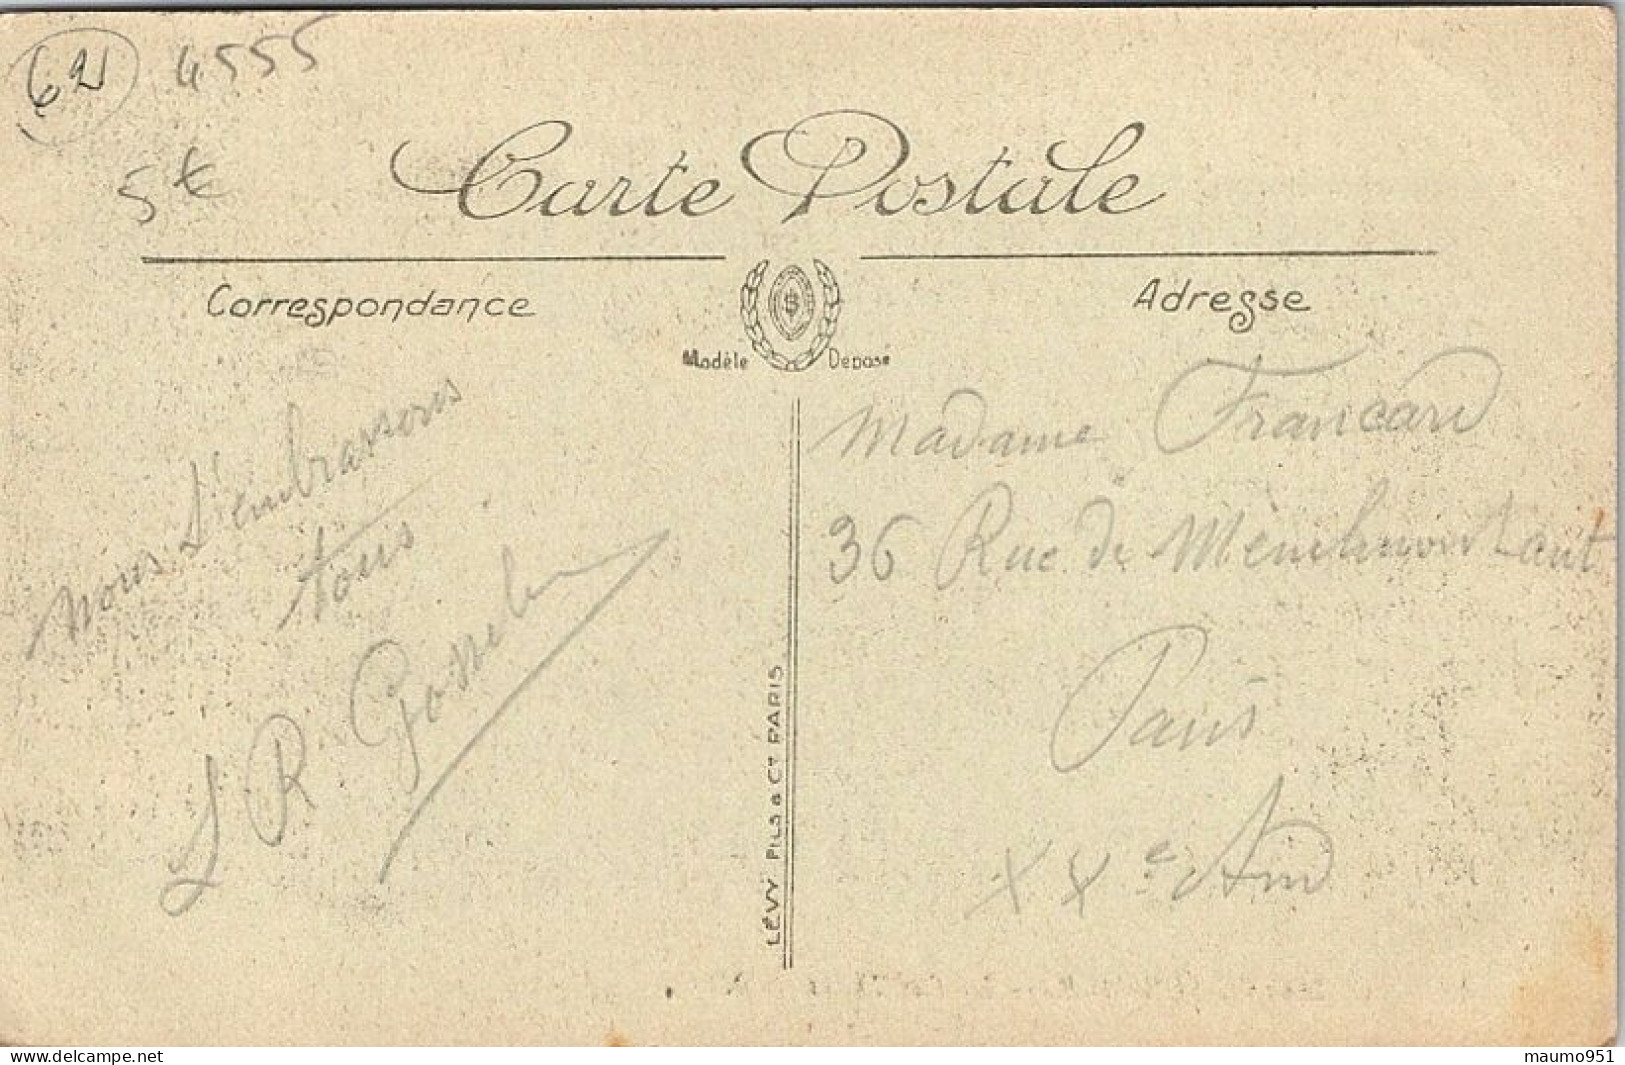 62
4555
5€
Carte Postale
Correspondance
Adresse
Modèle Déposé
nous t'embrassons
tous
Madame Francard
36 Rue de Ménilmontant
Paris
XXe Arr
LÉVY FILS & Cie PARIS
www.delcampe.net
maumo951